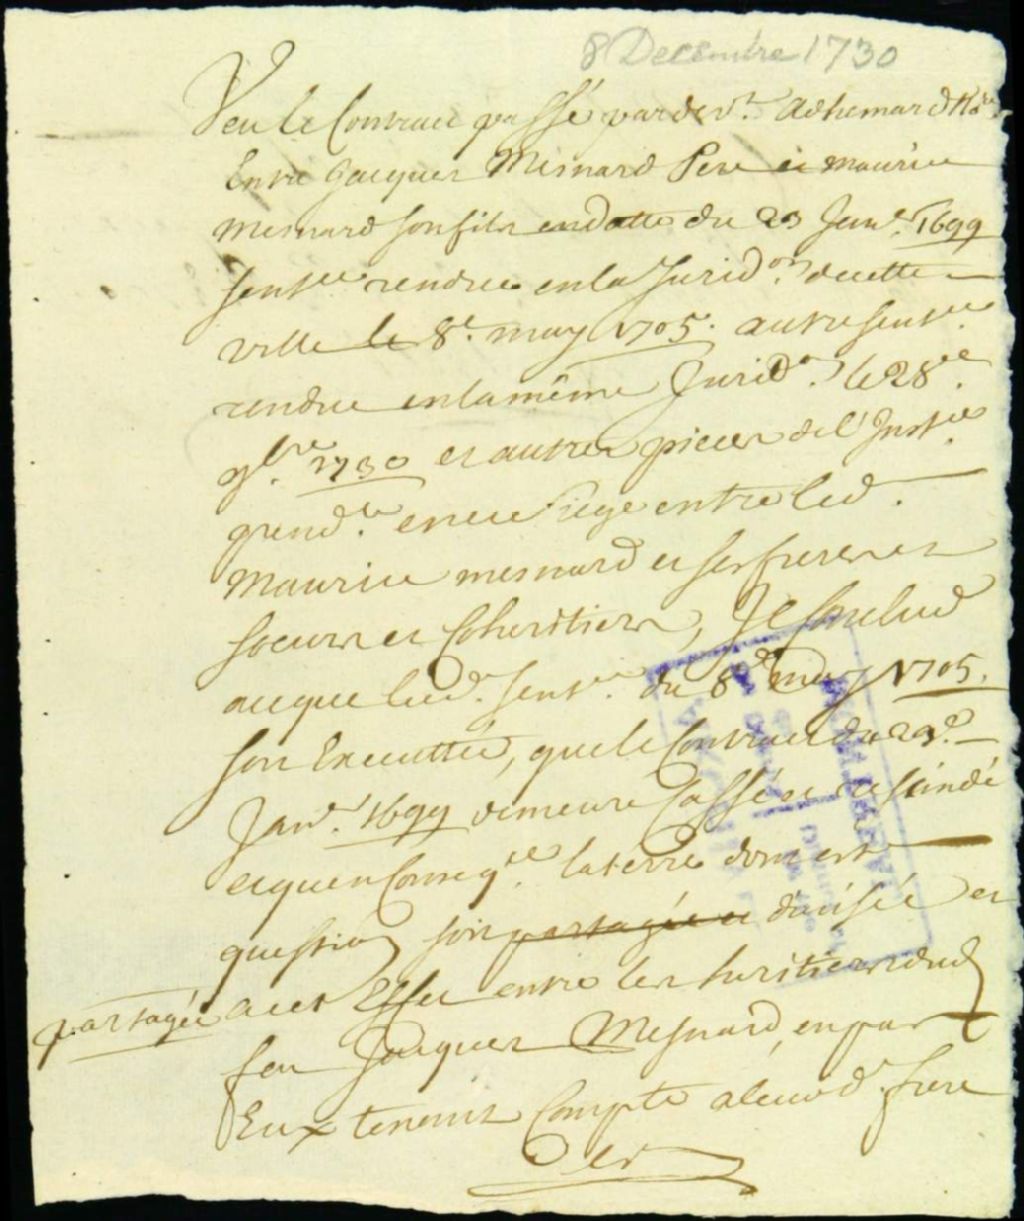 8 Decembre 1730
Veu le Contract passé pardevt. Adhemard Nore
Entre Jacques Mesnard Pere et Maurice
Mesnard son fils en datte du 23 Janer. 1699
sentce rendue en la Juridon. de cette
ville le 8e. may 1705. autre sentce.
rendue en la même Juridon. le 28e.
9bre. 1730 et autres pieces de l'Instce
pendte. en ce siege entre led.
Maurice mesnard et ses freres et
soeurs et Coheritiers, Je Conclud
a ce que lad. sentce. du 8e may 1705.
soit Executtée, que le Contract du 23e.
Janr. 1699 demeure Cassé et rescindé
et qu'en Conseqce. la terre dont est
question soit partagée et divisée et
partagée a cet Effet entre les heritiers dud
feu Jacques Mesnard, en par
Eux tenant Compte a leurd. frere
des